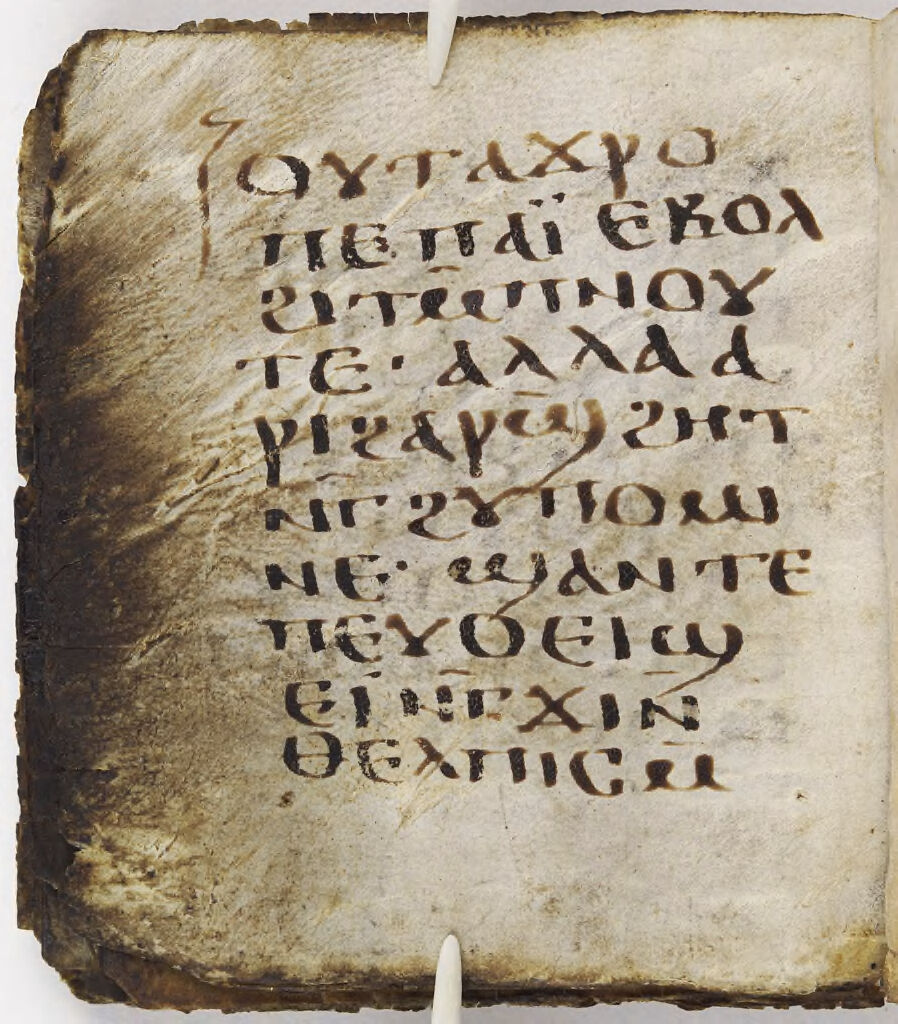 ⲟⲩⲧⲁϫⲣⲟ
ⲡⲉ ⲡⲁⲓ̈ ⲉⲃⲟⲗ
ϩⲓⲧⲙ̄ⲡⲛⲟⲩ
ⲧⲉ· ⲁⲗⲗⲁ ⲁ
ⲣⲓϩⲁⲣϣ̄ϩⲏⲧ
ⲛⲅ̄ϩⲩⲡⲟⲙ
ⲛⲉ· ϣⲁⲛⲧⲉ
ⲡⲉⲩⲟⲉⲓϣ
ⲉⲓ ⲛⲅ̄ϫⲓⲛ̄
ⲑⲉⲗⲡⲓⲥⲙ̄